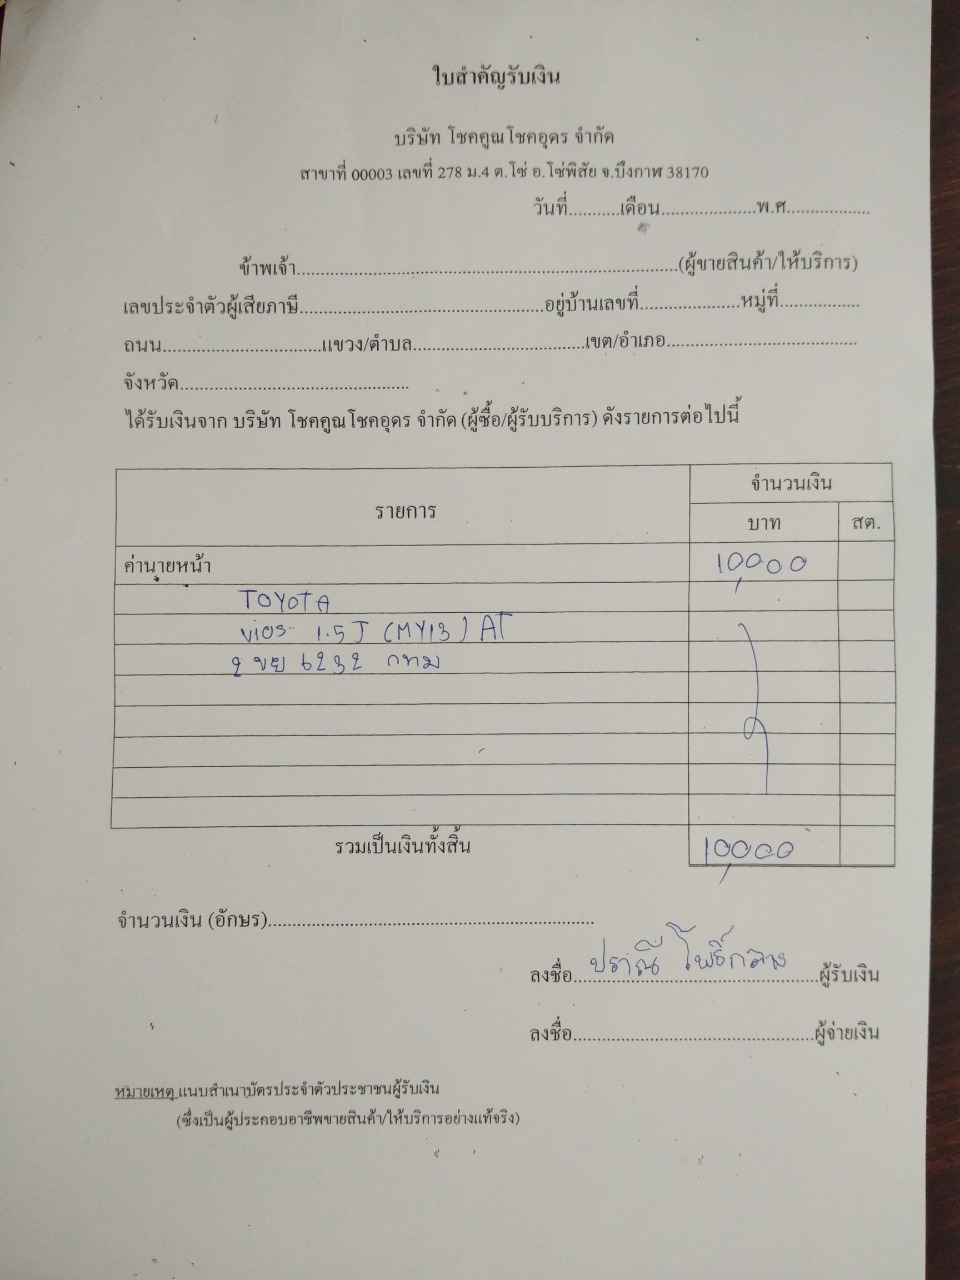 ใบสำคัญรับเงิน
บริษัท โชคคูณโชคอุดร จำกัด
สาขาที่ 00003 เลขที่ 278 ม.4 ต.โซ่ อ.โซ่พิสัย จ.บึงกาฬ 38170
วันที่...........เดือน.....................พ.ศ..................
ข้าพเจ้า...................................................................................(ผู้ขายสินค้า/ให้บริการ)
เลขประจำตัวผู้เสียภาษี.....................................................อยู่บ้านเลขที่......................หมู่ที่.................
ถนน..................................แขวง/ตำบล.....................................เขต/อำเภอ.........................................
จังหวัด.................................................
ได้รับเงินจาก บริษัท โชคคูณโชคอุดร จำกัด (ผู้ซื้อ/ผู้รับบริการ) ดังรายการต่อไปนี้
รายการ จำนวนเงิน
บาท สต.
ค่านายหน้า 10,000
TOYOTA
VIOS 1.5 J (MY13) AT
2 ขย 6232 กทม
รวมเป็นเงินทั้งสิ้น 10,000
จำนวนเงิน (อักษร)......................................................................
ลงชื่อ ปราณี โพธิ์กลาง ผู้รับเงิน
ลงชื่อ....................................................ผู้จ่ายเงิน
หมายเหตุ แนบสำเนาบัตรประจำตัวประชาชนผู้รับเงิน
(ซึ่งเป็นผู้ประกอบอาชีพขายสินค้า/ให้บริการอย่างแท้จริง)